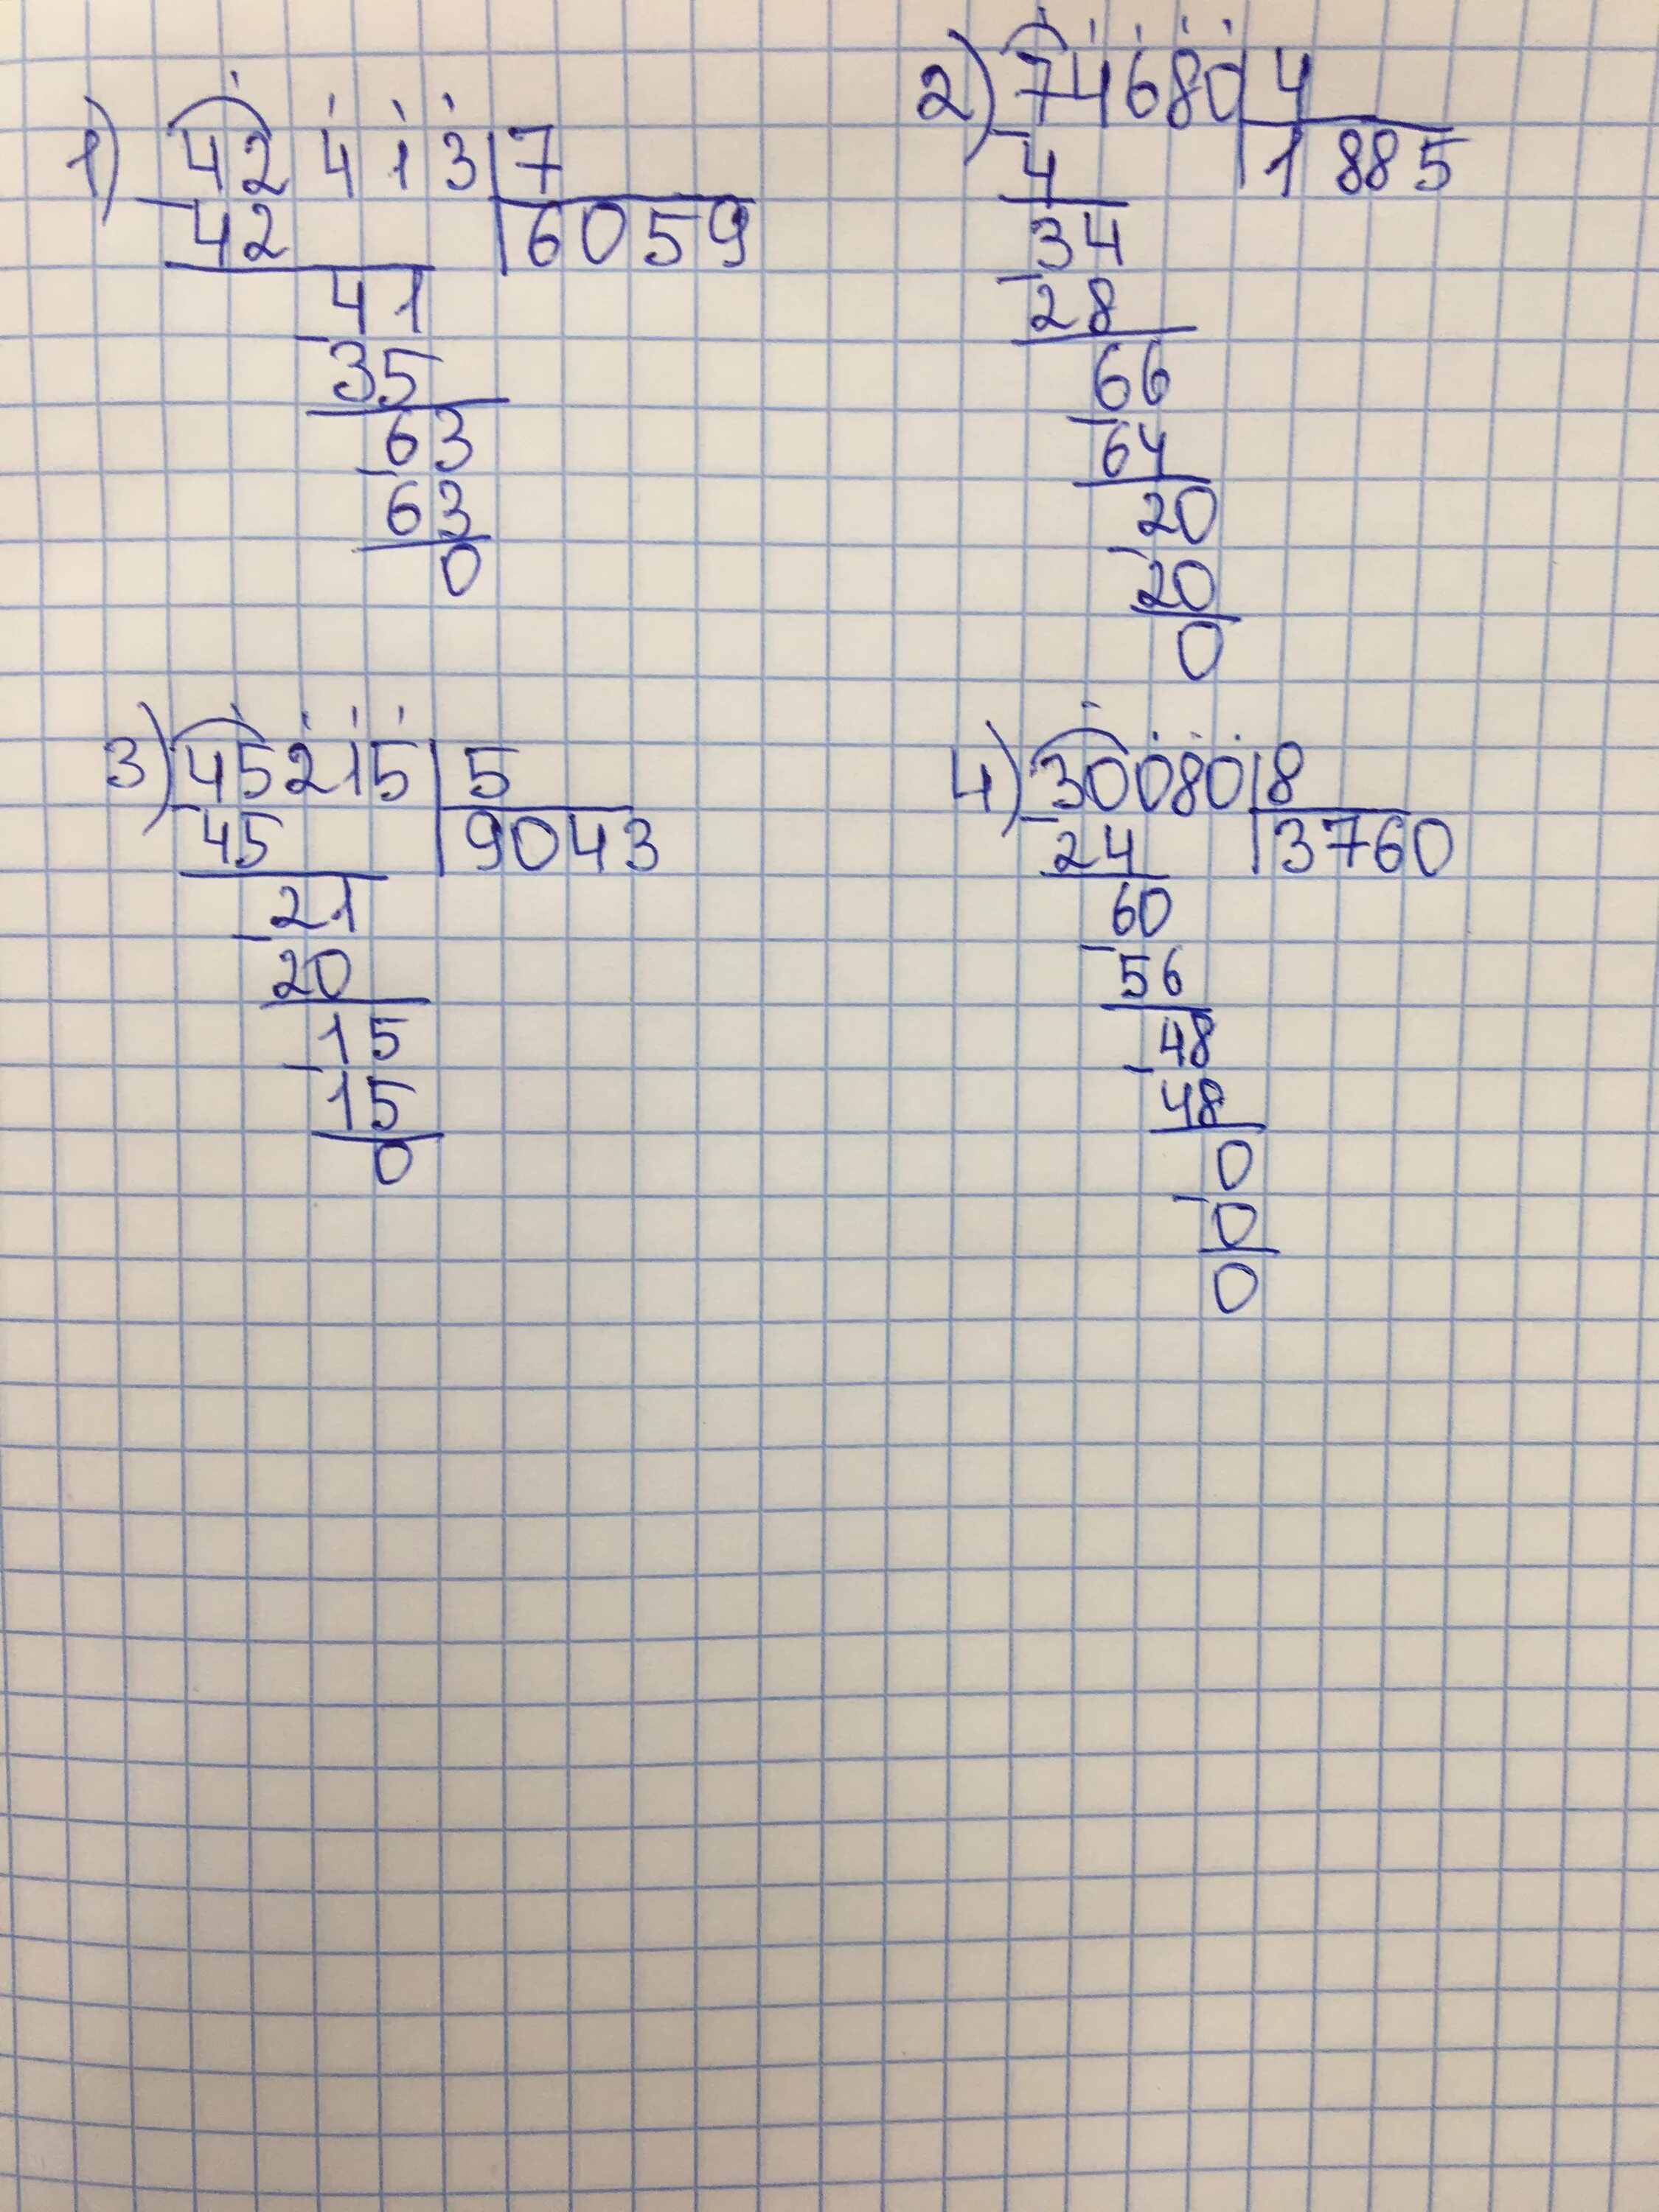 1) 42 413 | 7
42 | 6059
41
35
63
63
0
2) 74680 | 4
4 | 1 885
34
28
66
64
20
20
0
3) 45215 | 5
45 | 9043
21
20
15
15
0
4) 30080 | 8
24 | 3760
60
56
48
48
0
0
0